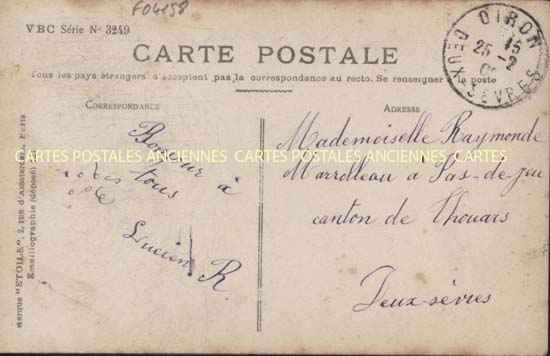 F04158
VBC Série No 3249
CARTE POSTALE
Tous les pays étrangers n'acceptent pas la correspondance au recto. Se renseigner à la poste
OIRON
15
25 -2
DEUX-SÈVRES
CORRESPONDANCE
Bonjour à
tous
Lucien R
ADRESSE
Mademoiselle Raymonde
Marrolleau à Pas-de-jeu
canton de Thouars
Deux-sèvres
CARTES POSTALES ANCIENNES CARTES POSTALES ANCIENNES CARTES POSTALES ANCIENNES
marque "ETOILE", 2, rue d'Amsterdam, Paris
Emaillographie (déposé)